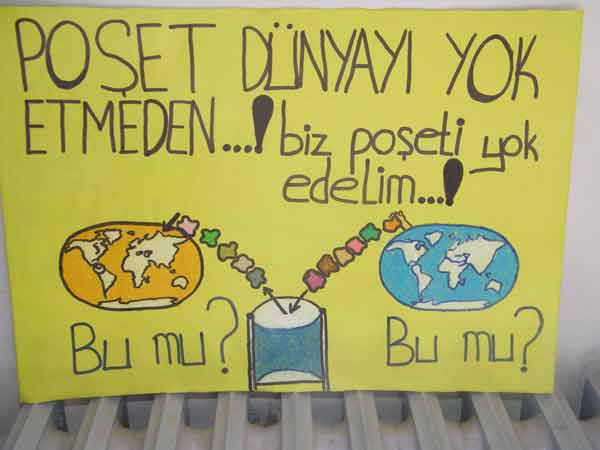 POŞET DÜNYAYI YOK
ETMEDEN....! biz poşeti yok
edelim....!
Bu mu? Bu mu?